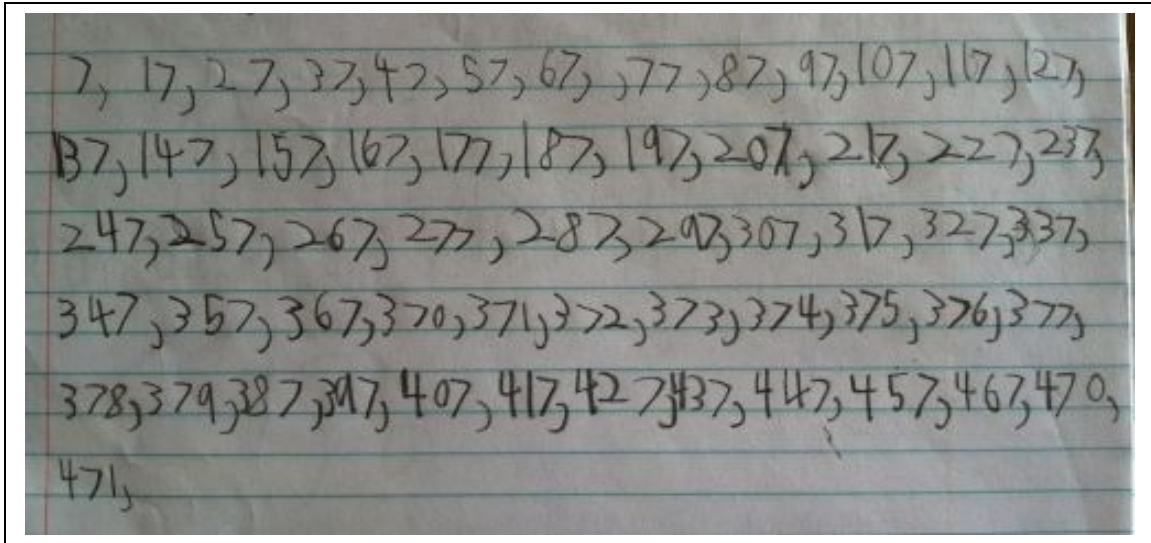 7, 17, 27, 37, 47, 57, 67, , 77, 87, 97, 107, 117, 127,
137, 147, 157, 167, 177, 187, 197, 207, 217, 227, 237,
247, 257, 267, 277, 287, 297, 307, 317, 327, 337,
347, 357, 367, 370, 371, 372, 373, 374, 375, 376, 377,
378, 379, 387, 397, 407, 417, 427, 437, 447, 457, 467, 470,
471,